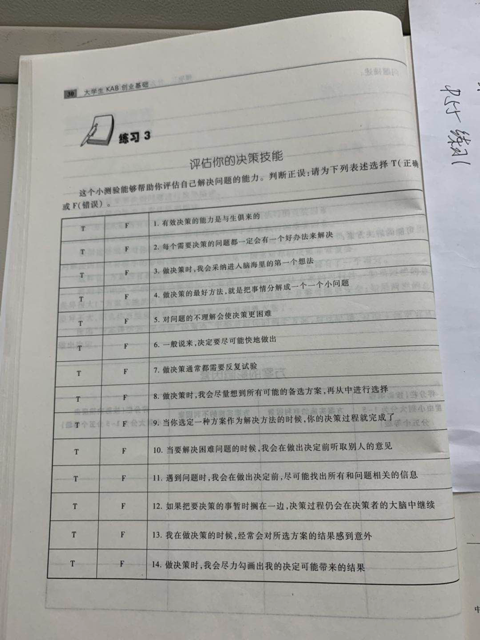 36 大学生 KAB 创业基础
练习 3
评估你的决策技能
这个小测验能够帮助你评估自己解决问题的能力。判断正误:请为下列表述选择 T(正确)
或 F(错误)。
T F 1. 有效决策的能力是与生俱来的
T F 2. 每个需要决策的问题都一定会有一个好办法来解决
T F 3. 做决策时,我会采纳进入脑海里的第一个想法
T F 4. 做决策的最好方法,就是把事情分解成一个一个小问题
T F 5. 对问题的不理解会使决策更困难
T F 6. 一般说来,决定要尽可能快地做出
T F 7. 做决策通常都需要反复试验
T F 8. 做决策时,我会尽量想到所有可能的备选方案,再从中进行选择
T F 9. 当你选定一种方案作为解决方法的时候,你的决策过程就完成了
T F 10. 当要解决困难问题的时候,我会在做出决定前听取别人的意见
T F 11. 遇到问题时,我会在做出决定前,尽可能找出所有和问题相关的信息
T F 12. 如果把要决策的事暂时搁在一边,决策过程仍会在决策者的大脑中继续
T F 13. 我在做决策的时候,经常会对所选方案的结果感到意外
T F 14. 做决策时,我会尽力勾画出我的决定可能带来的结果